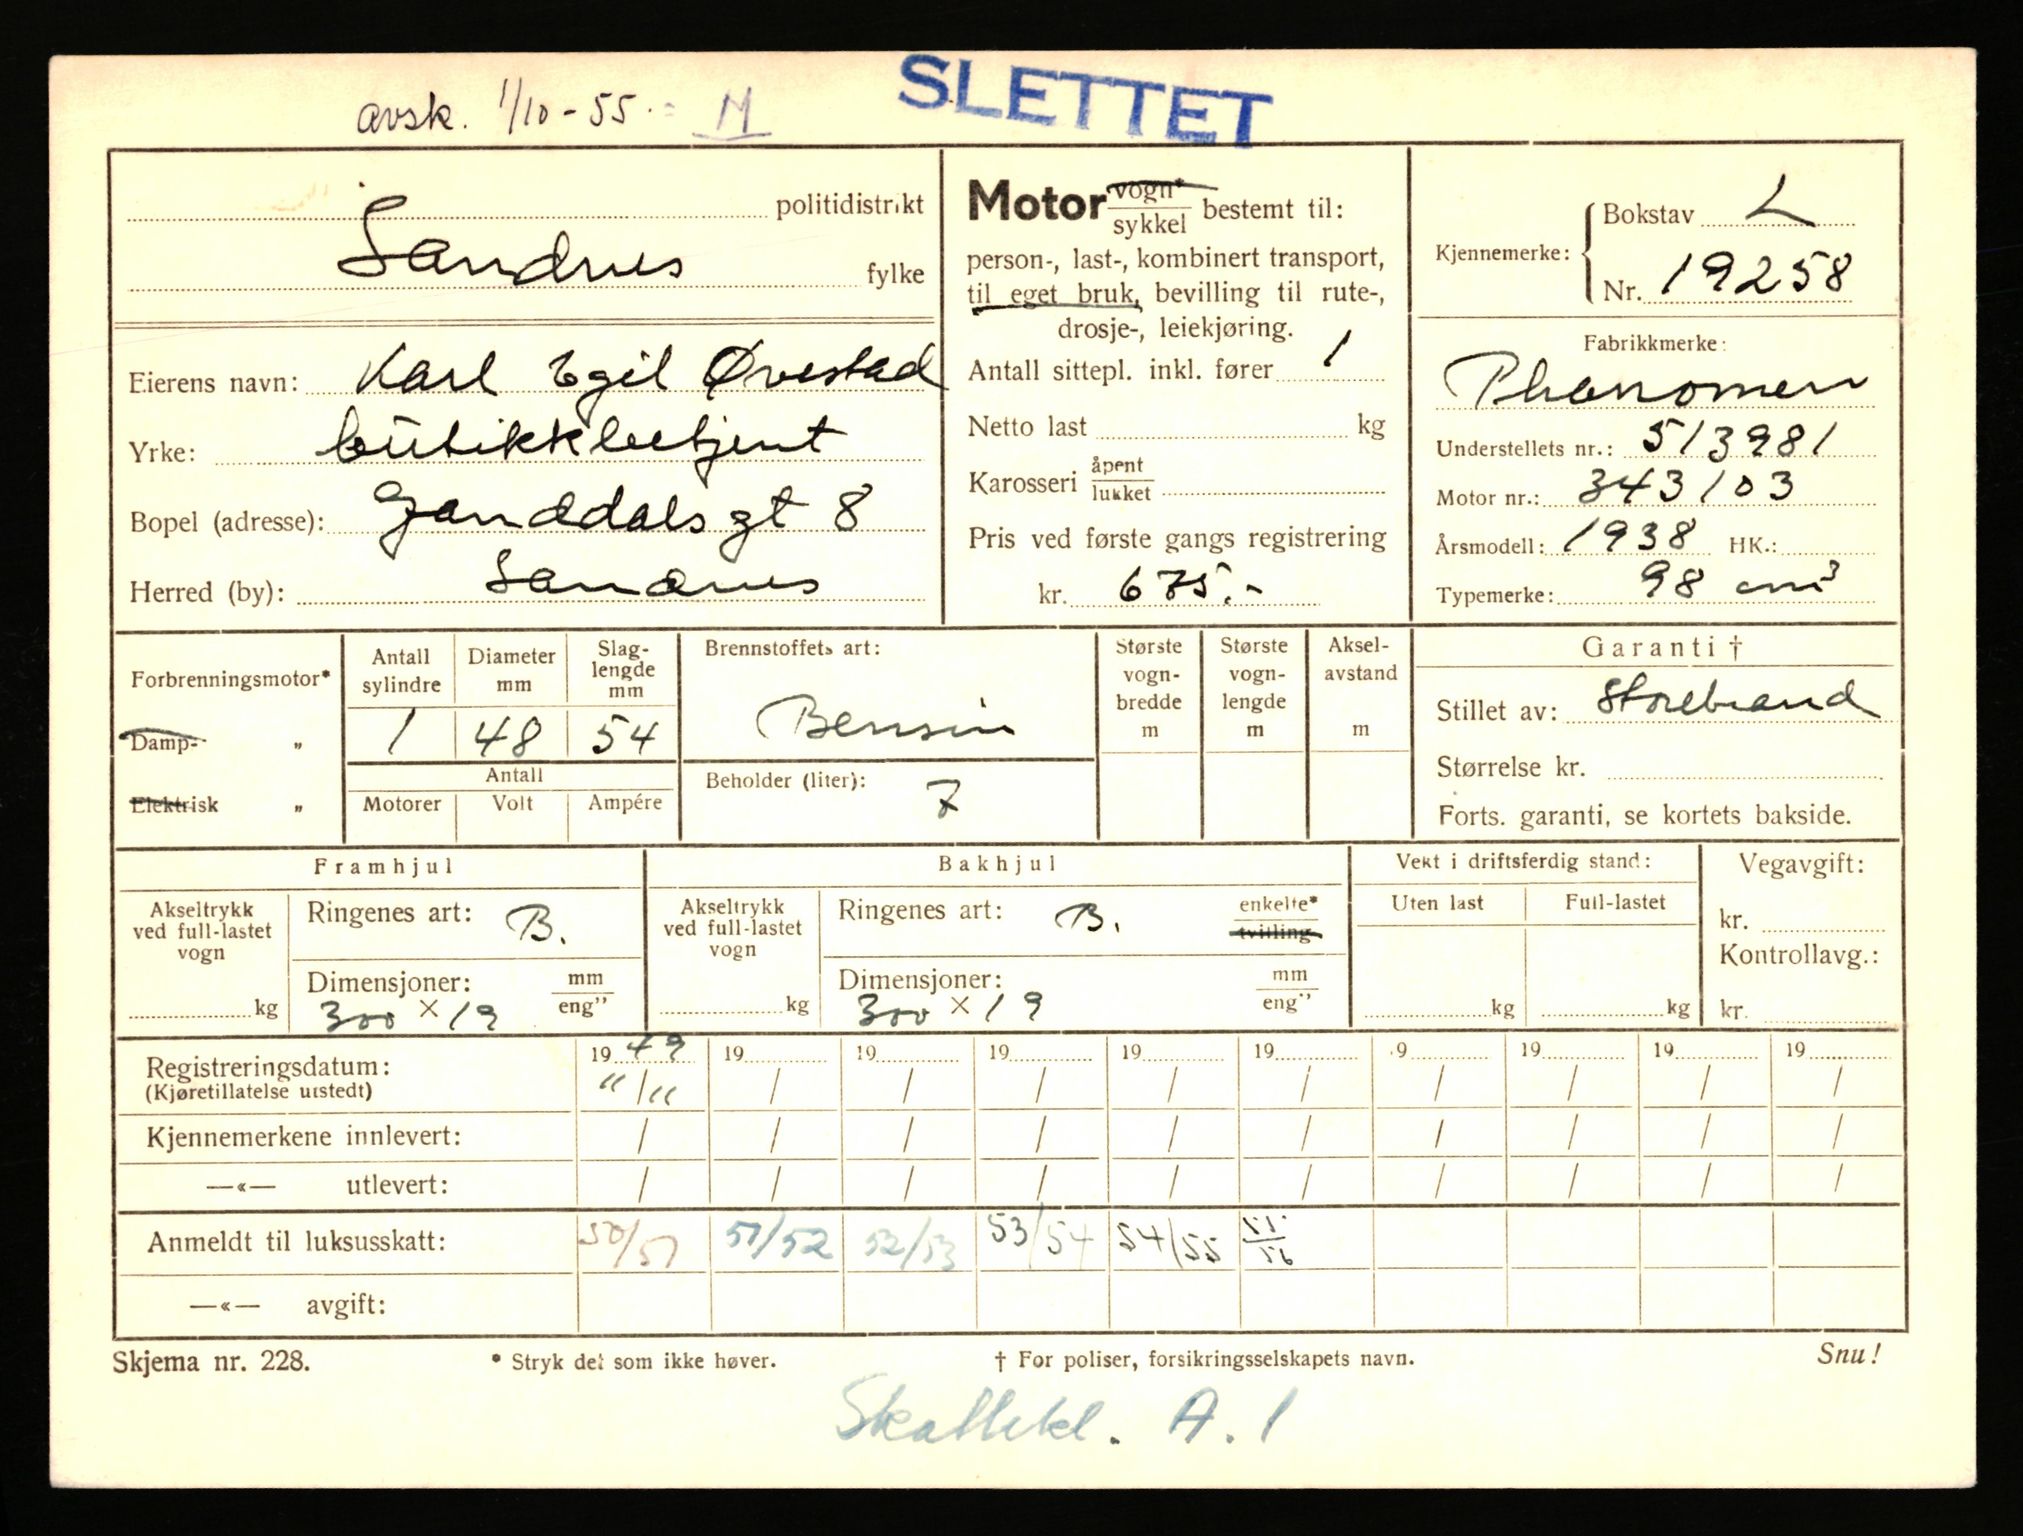 avsk. 1/10-55. = M
SLETTET
politidistrikt
Sandnes
fylke
Eierens navn: Karl Egil Øvestad
Yrke: butikkbetjent
Bopel (adresse): Ganddalsgt 8
Herred (by): Sandnes
Motor vogn* / sykkel bestemt til:
person-, last-, kombinert transport,
til eget bruk, bevilling til rute-,
drosje-, leiekjøring.
Antall sittepl. inkl. fører 1
Netto last kg
Karosseri åpent / lukket
Pris ved første gangs registrering
kr. 675.-
Kjennemerke: Bokstav L
Nr. 19258
Fabrikkmerke:
Phänomen
Understellets nr.: 513981
Motor nr.: 343103
Årsmodell: 1938 HK.:
Typemerke: 98 cm³
Forbrenningsmotor*
Damp- „
Elektrisk „
Antall sylindre
Diameter mm
Slag-
lengde
mm
1 48 54
Antall
Motorer Volt Ampére
Brennstoffets art:
Bensin
Beholder (liter): 7
Største
vogn-
bredde
m
Største
vogn-
lengde
m
Aksel-
avstand
m
Garanti †
Stillet av: Storebrand
Størrelse kr.
Forts. garanti, se kortets bakside.
Framhjul
Akseltrykk
ved full-lastet
vogn
kg
Ringenes art: B.
Dimensjoner: mm / eng"
300 × 19
Bakhjul
Akseltrykk
ved full-lastet
vogn
kg
Ringenes art: B. enkelte* / tvilling
Dimensjoner: mm / eng"
300 × 19
Vekt i driftsferdig stand:
Uten last Full-lastet
kg kg
Vegavgift:
kr.
Kontrollavg.:
kr.
Registreringsdatum: 1949 19 19 19 19 19 19 19 19 19
(Kjøretillatelse utstedt) "/" / / / / / / / / /
Kjennemerkene innlevert: / / / / / / / / / /
—«— utlevert: / / / / / / / / / /
Anmeldt til luksusskatt: 50/51 51/52 52/53 53/54 54/55 55/56
—«— avgift:
Skjema nr. 228. * Stryk det som ikke høver. † For poliser, forsikringsselskapets navn. Snu!
Skattekl. A. 1